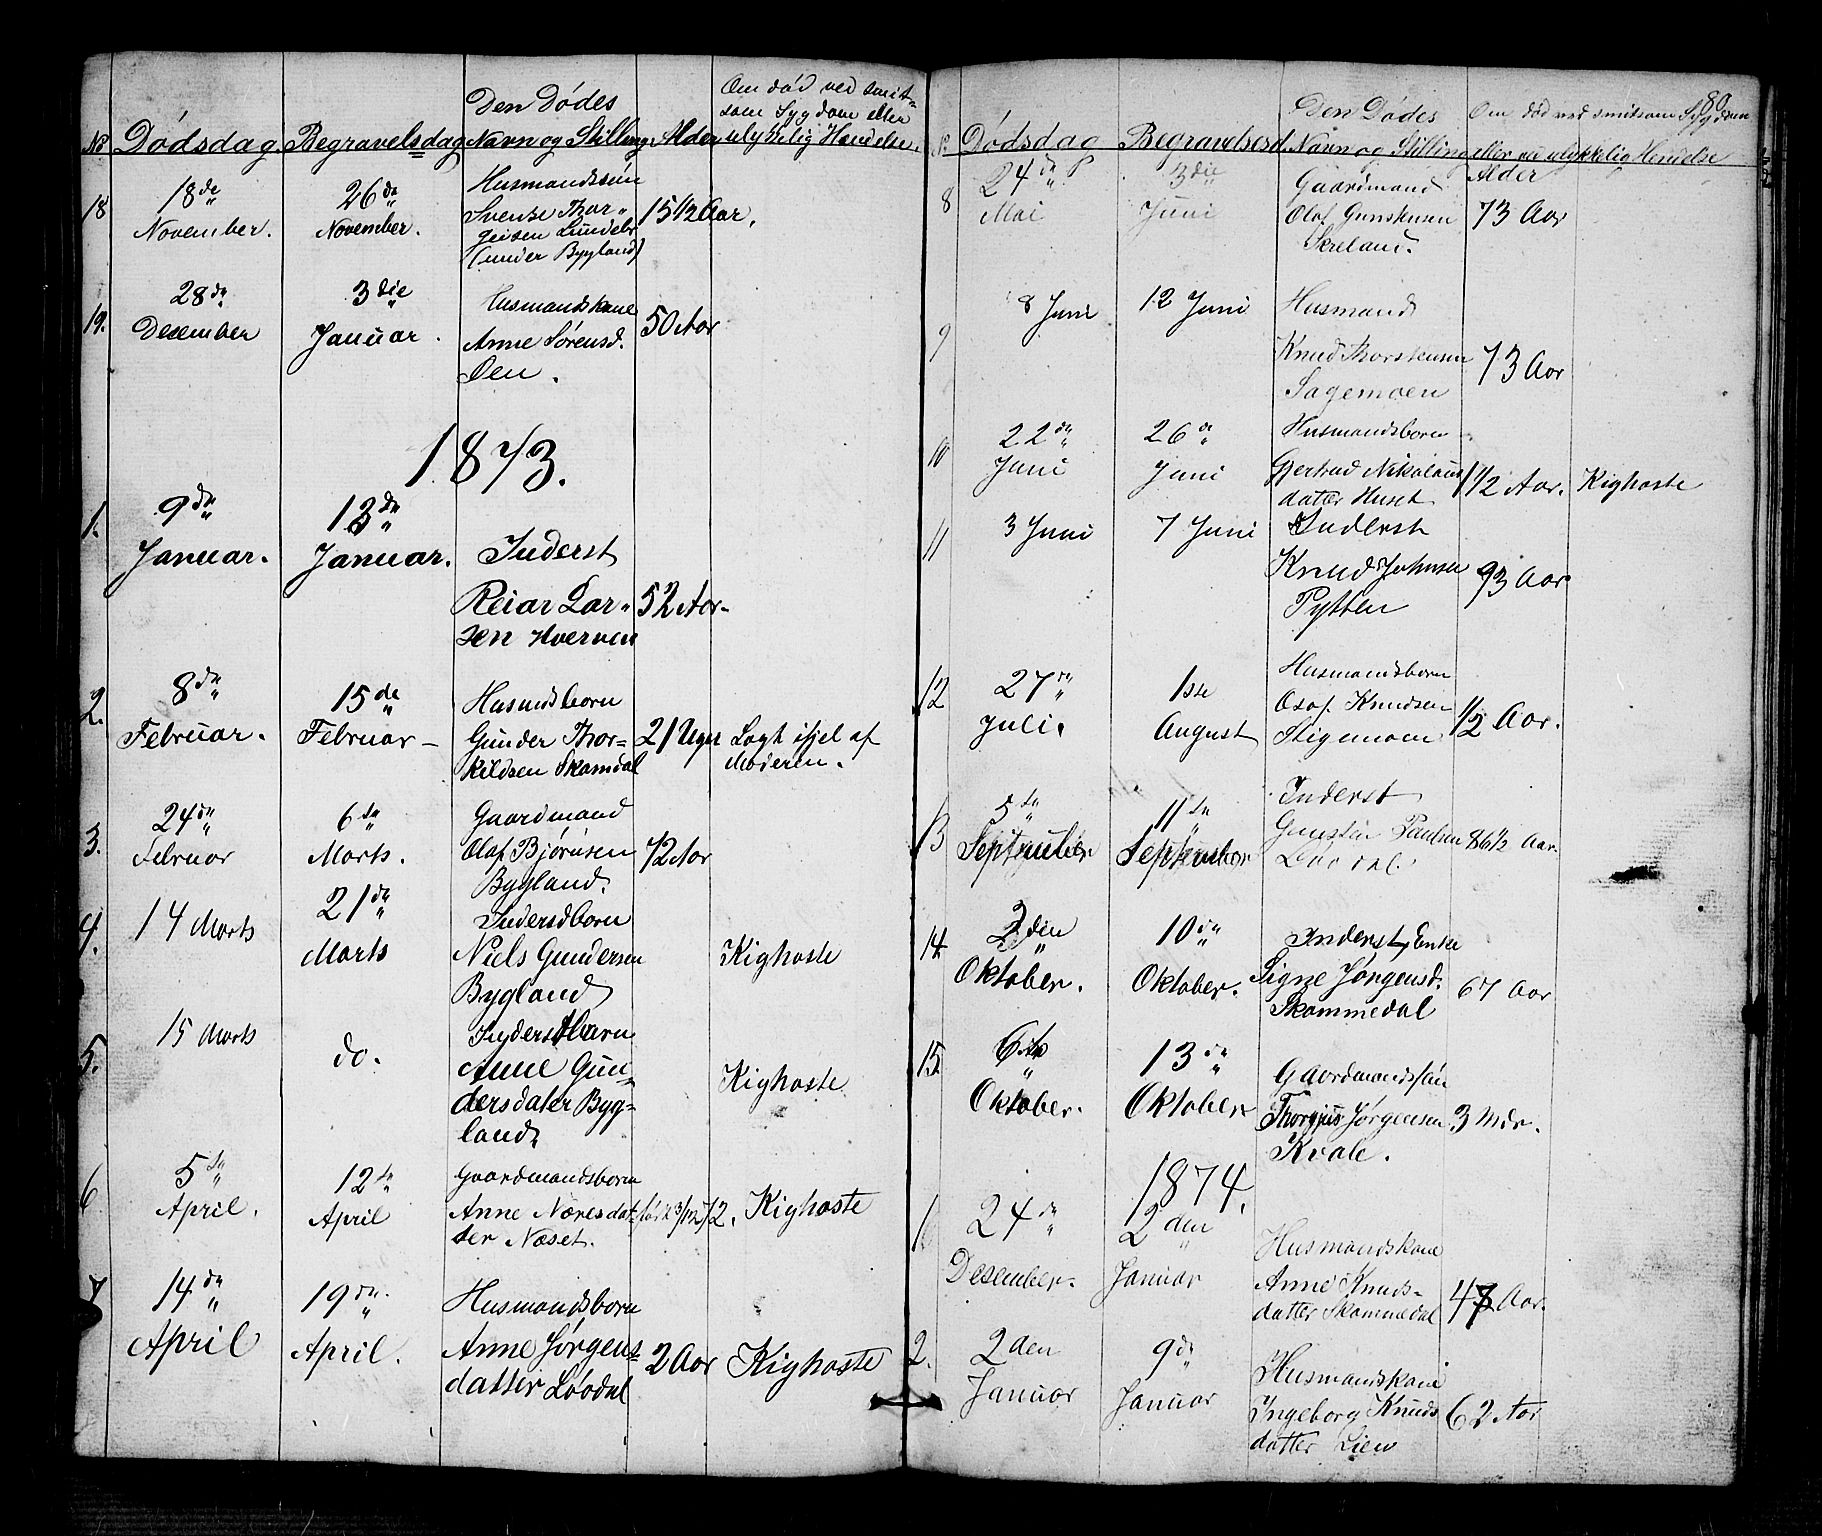 Dødsdag Begravelsdag Den Dødes Navn og Stilling Alder Om død ved smitsom Sygdom eller ulykkelig Hendelse.
18 18de November. 26de November. Husmandssøn Svenke Thorgeisen (under Bygland) 15 1/2 Aar.
19. 28de Desember 3die Januar. Husmandskone Anne Sørensd. Øen. 50 Aar
1873.
1. 9de Januar. 13de Januar. Inderst Reiar Larsen Hverven 52 Aar
2. 8de Februar. 15de Februar Husmdsborn Gunder Thorkildsen Skomdal 21 Uger Lagt ihjel af Moderen.
3. 24de Februar 6te Marts. Gaardmand Olaf Bjørnsen Bygland. 72 Aar
4. 14 Marts 21de Marts Indersdborn Niels Gundersen Bygland Kighoste
5. 15 Marts do. Inderstbarn Anne Gundersdater Bygland Kighoste
6 5te April. 12te April Gaardmandsborn Anne Næresdatter Næset. Kighoste
7 14de April 19de April. Husmandsborn Anne Jørgensdatter Løodal 2 Aar Kighoste
80
No Dødsdag Begravelsesd. Den Dødes Navn og Stilling Om død ved smitsom Sygdom eller ved ulykkelig Hendelse
Alder
8 24de Mai 3die Juni Gaardmand Olaf Skreland. 73 Aar
9 8 Juni 12 Juni Husmand Knud Thorstensen Sagemoen 73 Aar
10 22de Juni 26de Juni Husmandsborn Gjertrud Nikolaus datter Huset 1 1/2 Aar. Kighoste
11 3 Juni 7 Juni Inderst Knud Johnsen Pytten 93 Aar
12 27de Juli. 1ste August Husmandsborn Knudsen Stigemoen 1/2 Aar.
13 5te September 11te September Inderst Paulsen 86 1/2 Aar.
14 2den Oktober. 10de Oktober. Inderst, Enke Signe Jørgensd. Skammedal 67 Aar
15 6te Oktober. 13de Oktober Gaardmandssøn Thorgjus Jørgensen Kvale. 3 Mdr.
1874.
1 24de Desember. 2den Januar Husmandskone Anne Knudsdatter Skammedal 47 Aar.
2. 2den Januar 9de Januar Husmandskone Ingeborg Knudsdatter Lien 62 Aar